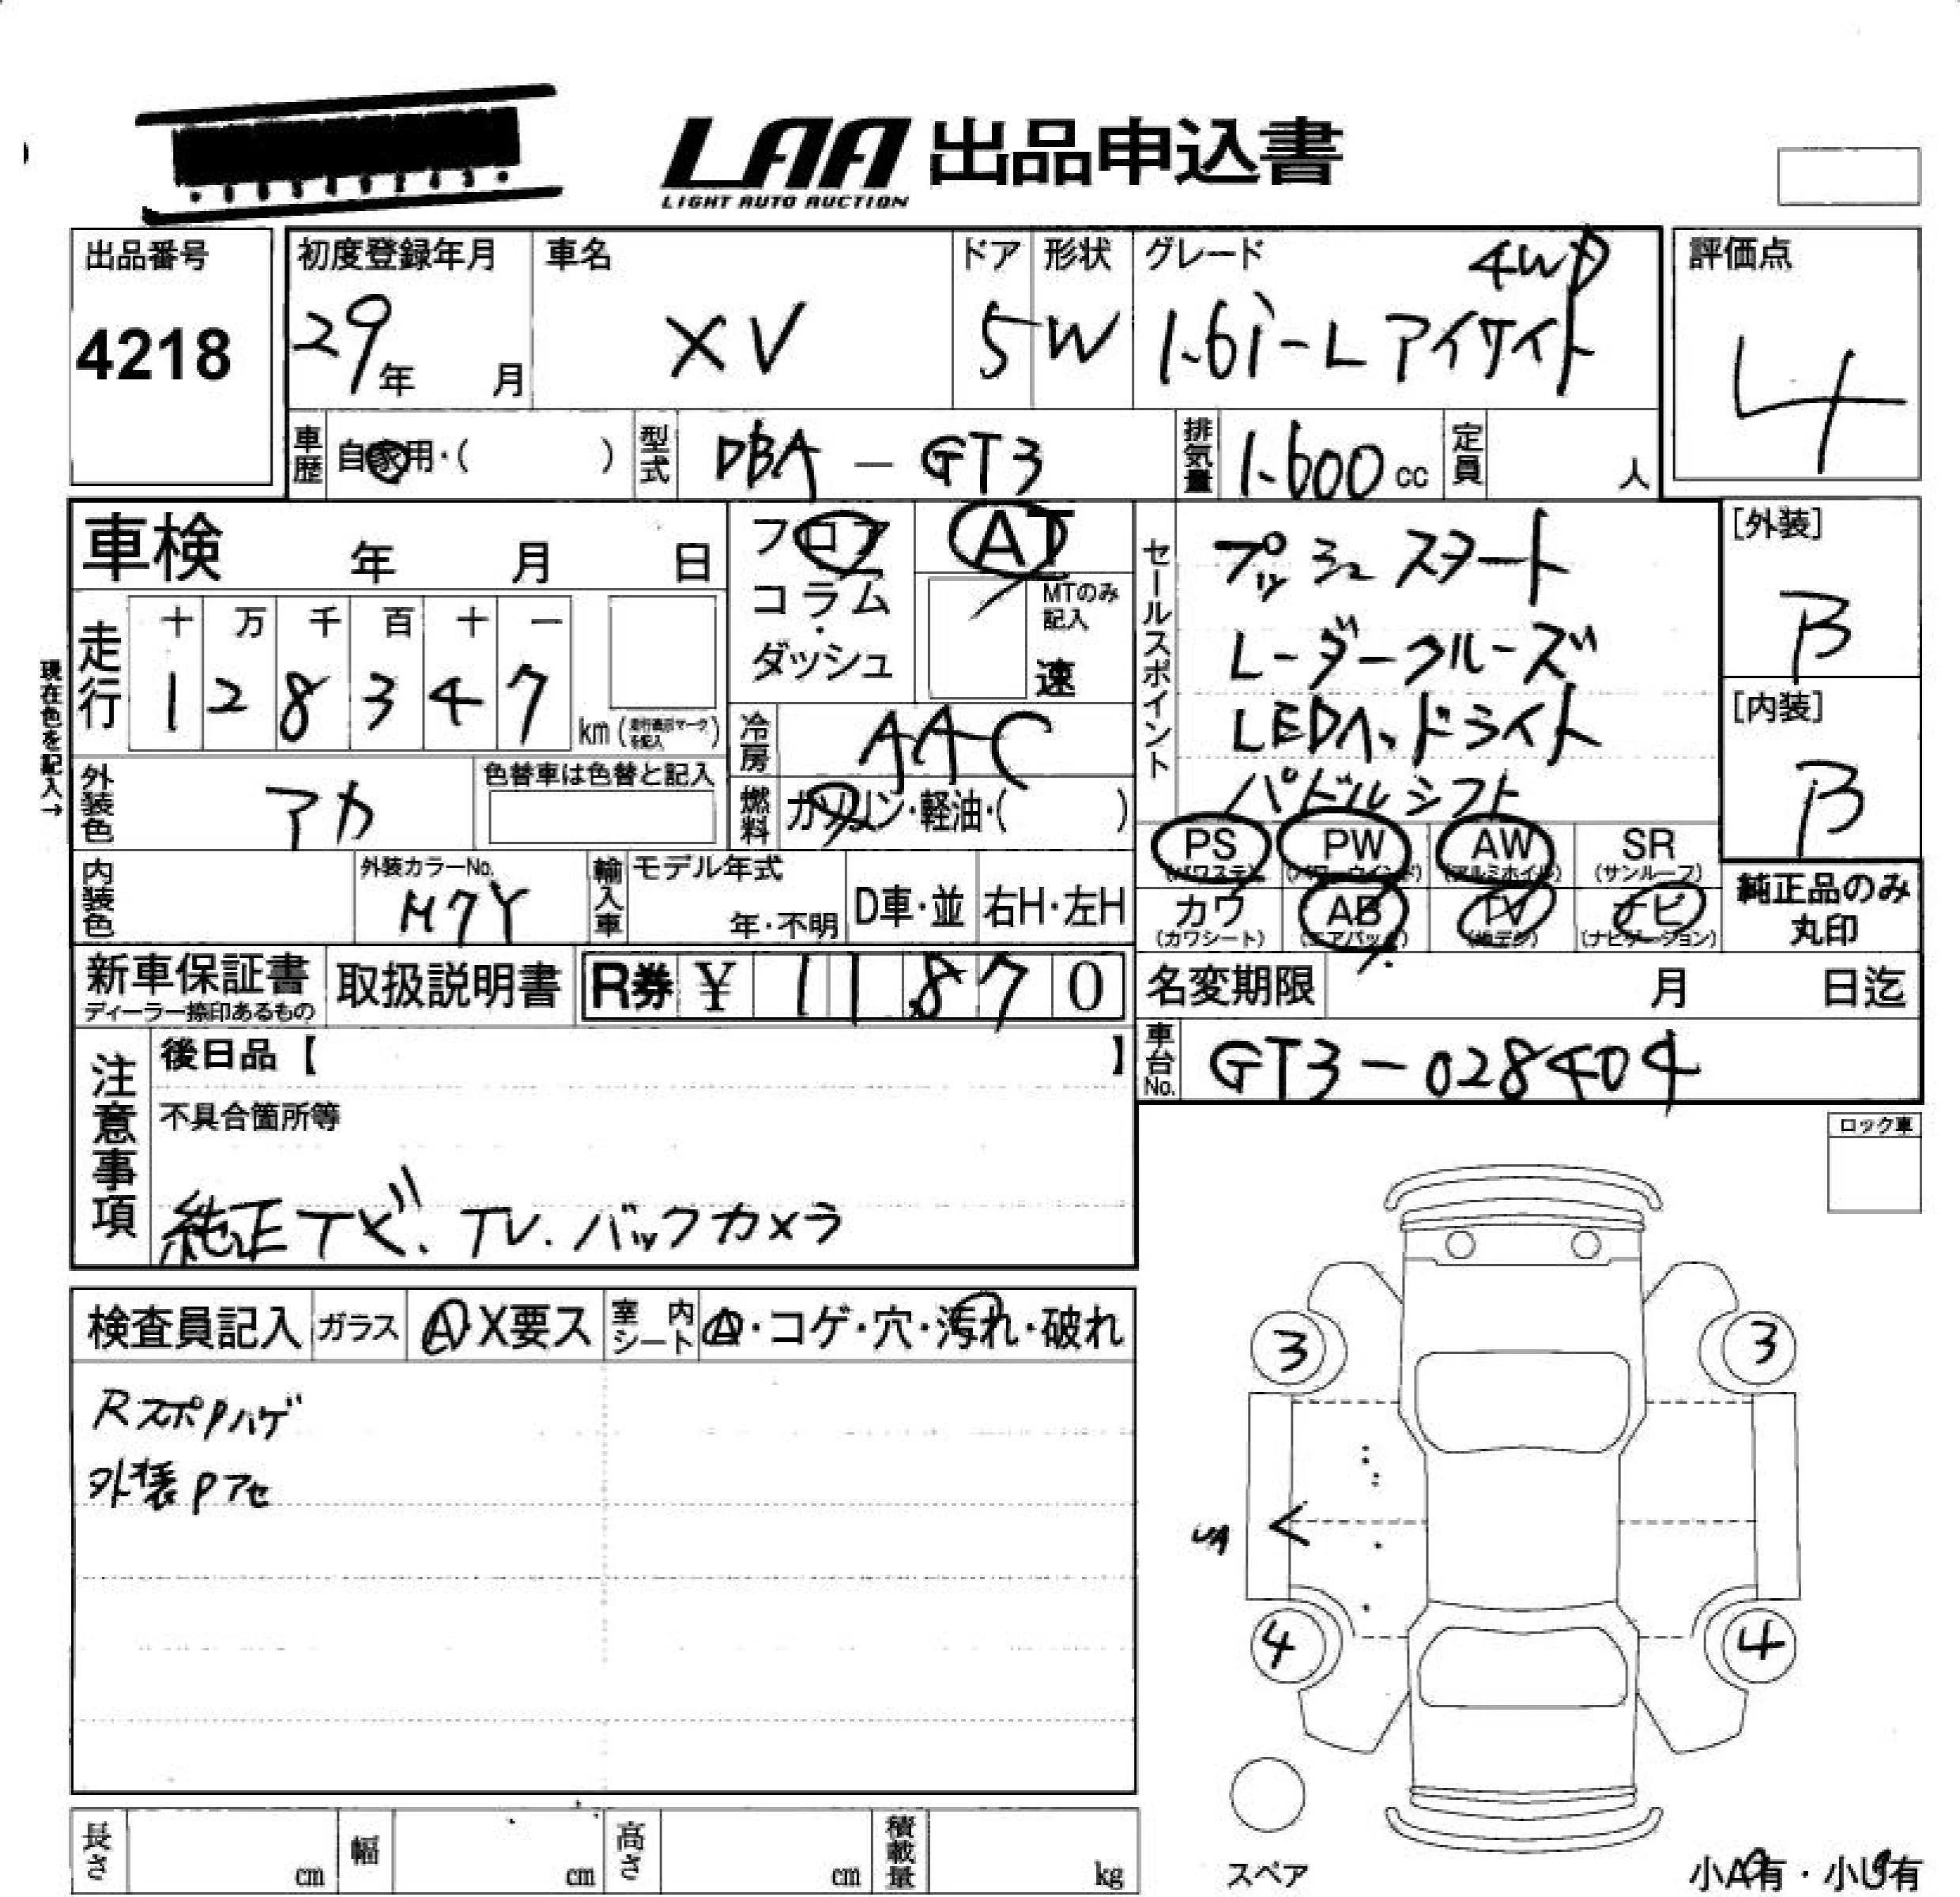 LAA 出品申込書
LIGHT AUTO AUCTION
出品番号
4218
初度登録年月
29年 月
車名
XV
ドア
5
形状
W
グレード
4WD
1.6i-L アイサイト
評価点
4
車歴 自家用・( )
型式 DBA-GT3
排気量 1.600cc
定員 人
車検 年 月 日
走行
十 万 千 百 十 一
1 2 8 3 4 7 km
現在色を記入→
フロア
コラム
ダッシュ
AT
MTのみ記入
速
冷房 AAC
燃料 ガソリン・軽油・( )
外装色 アカ
色替車は色替と記入
内装色
外装カラーNo.
H7Y
輸入車 モデル年式
年・不明
D車・並
右H・左H
セールスポイント
プッシュスタート
レーダークルーズ
LEDヘッドライト
パドルシフト
[外装]
B
[内装]
B
PS (パワステ) PW (パワーウインド) AW (アルミホイル) SR (サンルーフ)
カワ (カワシート) AB (エアバック) TV (地デジ) ナビ (ナビゲーション)
純正品のみ
丸印
新車保証書
ディーラー捺印あるもの
取扱説明書
R券 ¥ 11870
名変期限 月 日迄
車台No. GT3-028404
注意事項
後日品【 】
不具合箇所等
純正ナビ、TV.バックカメラ
ロック車
検査員記入 ガラス A・X要ス 室内シート A・コゲ・穴・汚れ・破れ
RスポPハゲ
外装Pアセ
3 3
4 4
スペア
長さ cm 幅 cm 高さ cm 積載量 kg
小A有・小U有